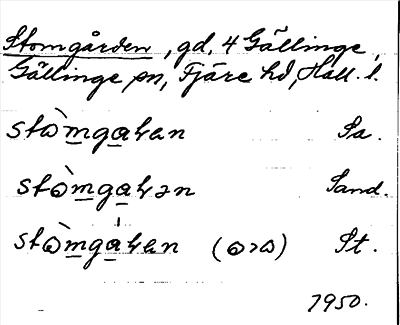 Stomgården, gd, 4 Gällinge,
Gällinge sn, Fjäre hd, Hall. l.
stòmgaɽan Sa.
stòmgaɽən Sand.
stòmgáɽan (oro) St.
1950.